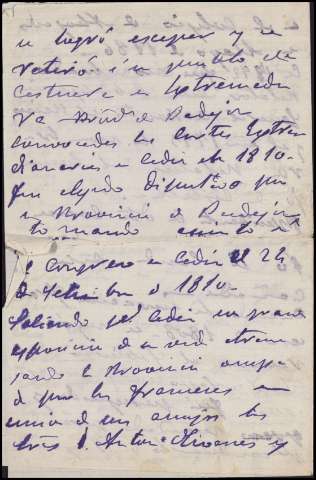 se logró escapar y se
retiró á un pueblo de
Castuera en Extremadu
ra Provincia de Badajoz
convocadas las Cortes Extra
ordinarias en Cadiz el 1810.
fue elejido diputado por
la Provincia de Badajoz
tomando asiento en
el Congreso en Cadiz el 24
de Setiembre de 1810.
Saliendo para Cadiz con grave
esposicion de su vida atrave
sando la Provincia ocupa
da por los franceses en
union de sus amigos los
Sres D. Antonio Oliveros y